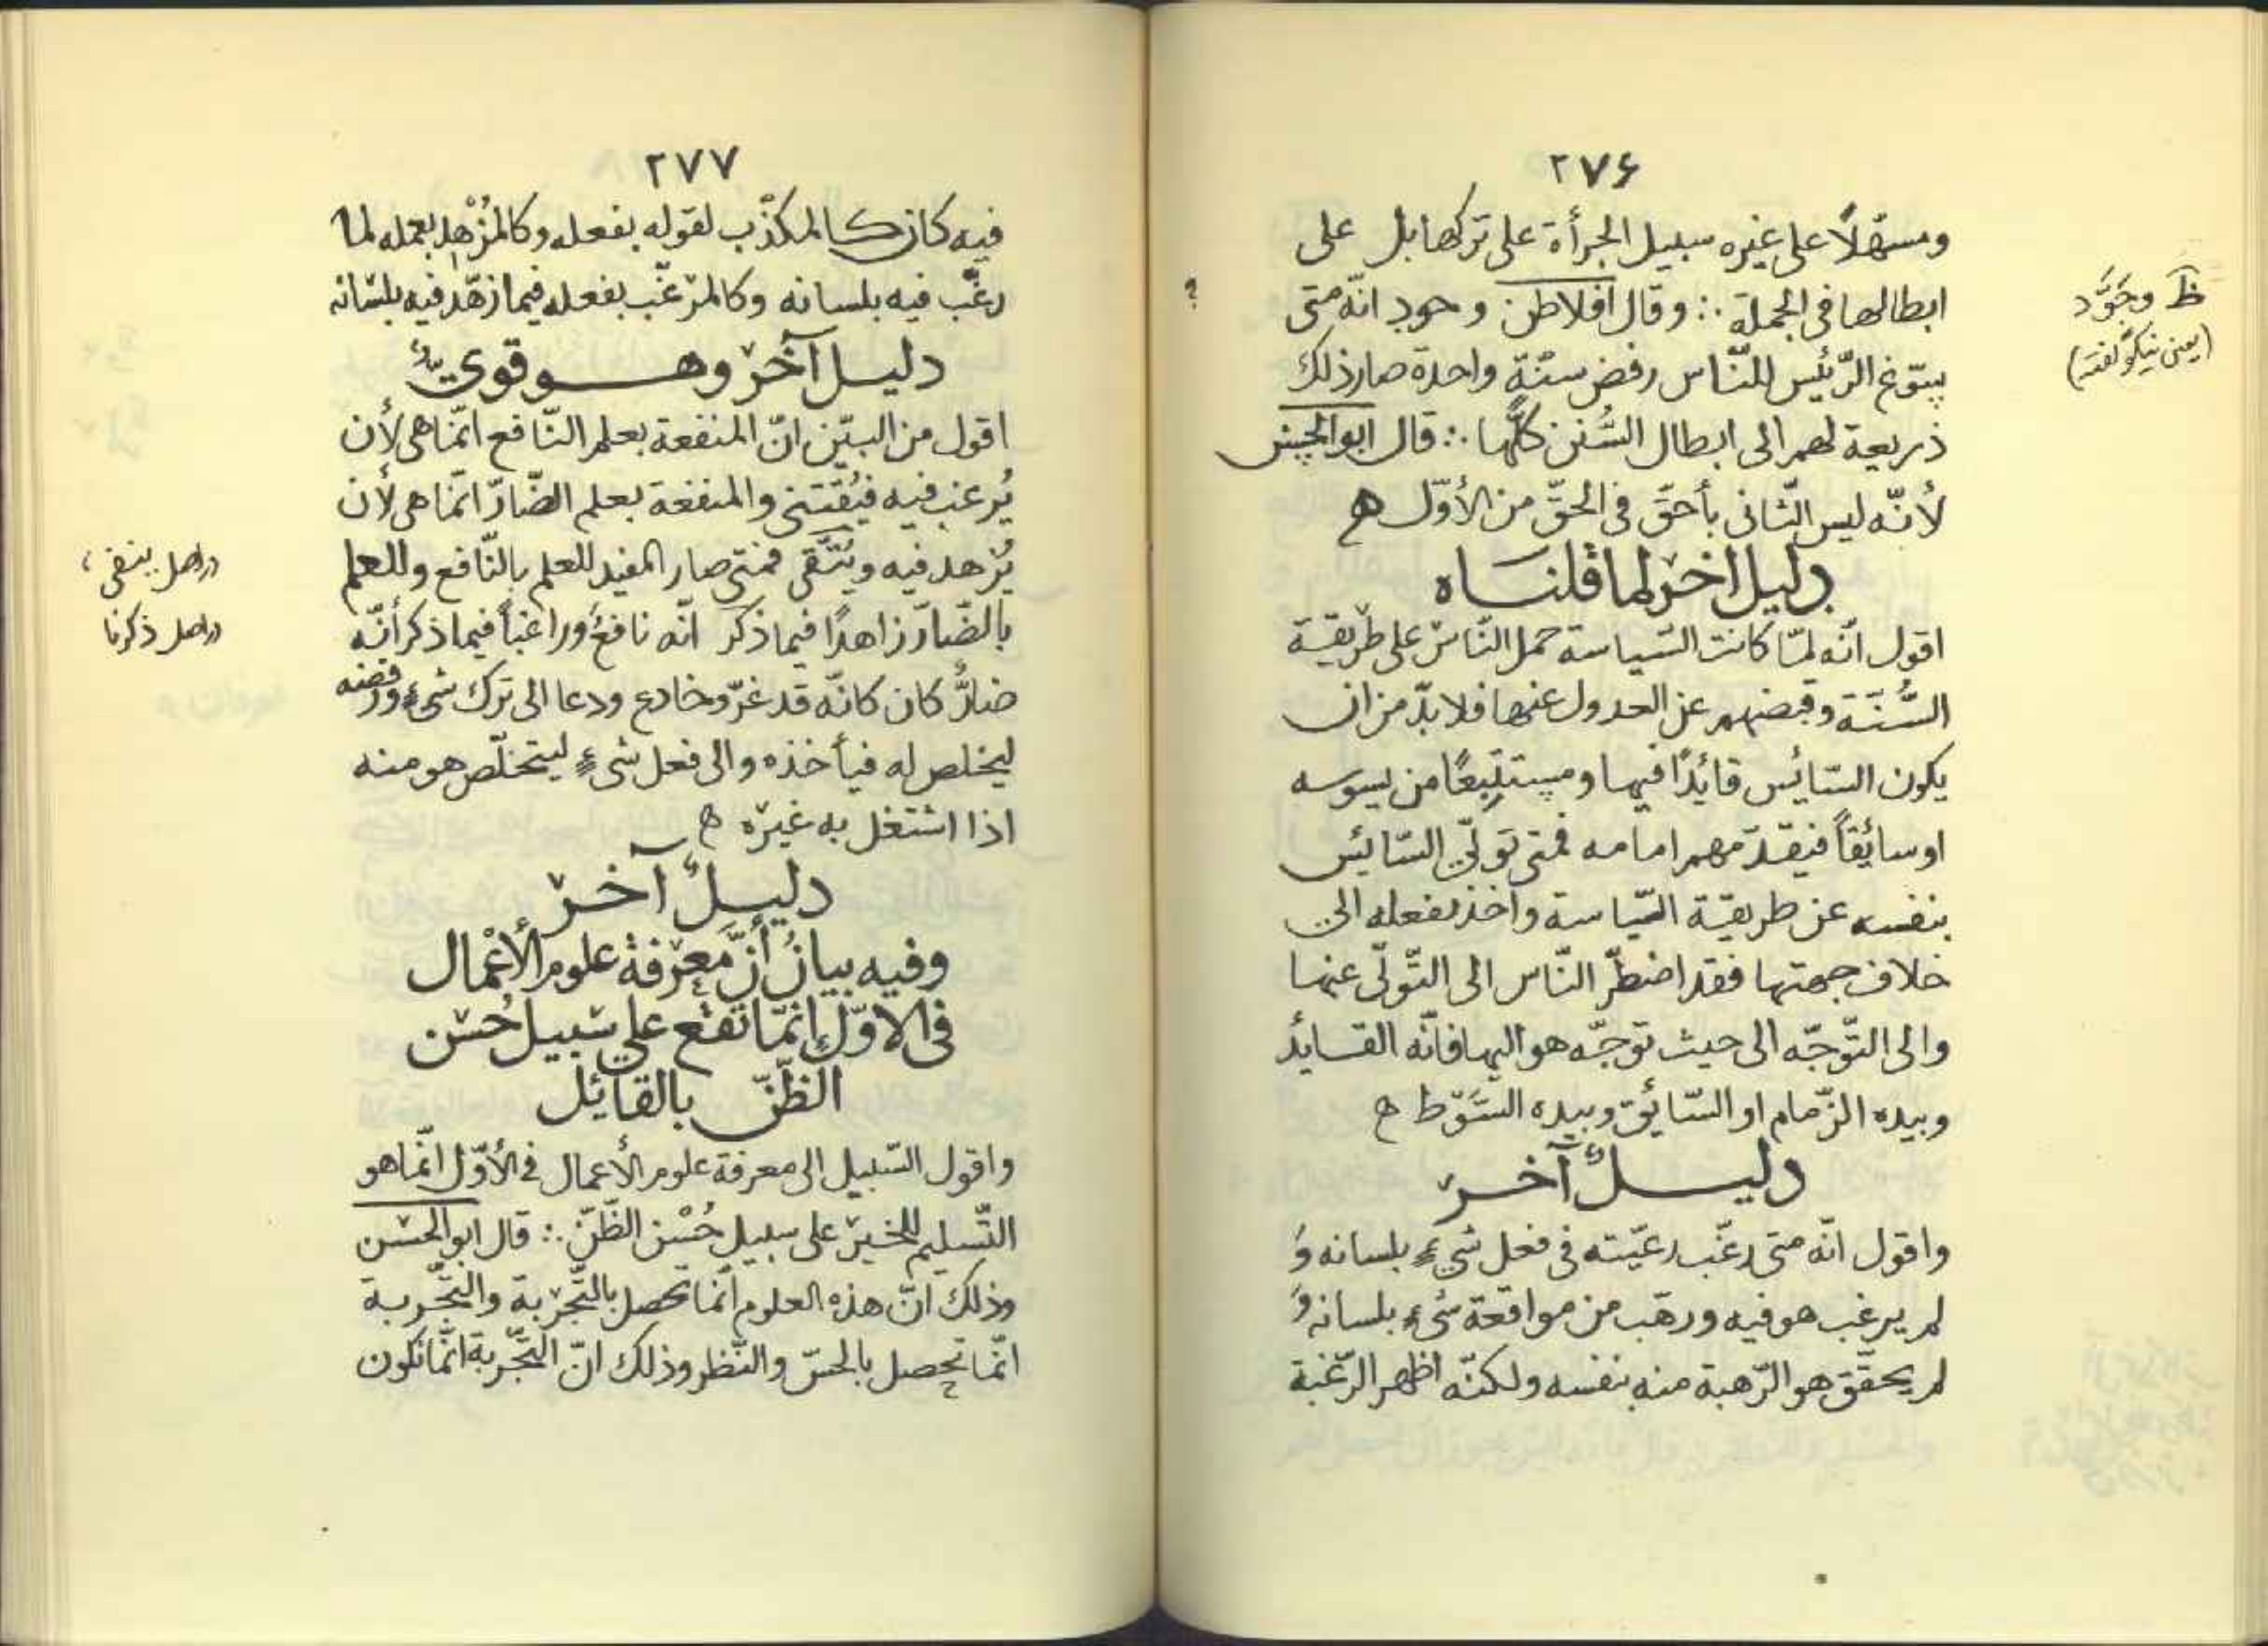 ٢٧۶
ومسهّلاً على غيره سبيل الجرأة على تركها بل على
ابطالها فى الجملة ∴ وقال افلاطن وحود انّه متى
يسّوغ الرّئيس للنّاس رفض سنّة واحدة صار ذلك
ذريعة لهم الى ابطال السُّنن كلّها ∴ قال ابو الحسن
لأنّه ليس الثّانى بأحقّ فى الحقّ من الأوّل ه
دليل اخر لما قلناه
اقول انّه لمّا كانت السّياسة حمل النّاس على طريقة
السُّنّة وقبضهم عن العدول عنها فلا بدّ من ان
يكون السّائس قائدًا فيها ومستتبعًا من يسوسه
او سائقاً فيقدّمهم امامه فمتى تولّى السّائس
بنفسه عن طريقة السّياسة واخذ بفعله الى
خلاف جهتها فقد اضطرّ النّاس الى التّولّى عنها
والى التّوجّه الى حيث توجّه هو اليها فانّه القائد
وبيده الزّمام او السّائق وبيده السَّوط ه
دليلٌ آخر
واقول انّه متى رغّب رعيّته فى فعل شىءٍ بلسانه وَ
لم يرغب هو فيه ورهّب من مواقعة شىءٍ بلسانه وَ
لم يحقّق هو الرّهبة منه بنفسه ولكنّه اظهر الرّغبة
ظ وجَوَّد
(يعنى نيكو گفته)
؟
٢٧٧
فيه كان كالمكذّب لقوله بفعله وكالمُزْهِد بعمله لما
رغّب فيه بلسانه وكالمرغّب بفعله فيما زهّد فيه بلسانه
دليل آخر وهو قوىٌّ
اقول من البيّن انّ المنفعة بعلم النّافع انّما هى لأن
يُرغب فيه فيُقتنى والمنفعة بعلم الضّارّ انّما هى لأن
يُزهد فيه ويُتّقى فمتى صار المفيد للعلم بالنّافع وللعلم
بالضّارّ زاهدًا فيما ذكر انّه نافعٌ وراغباً فيما ذكر أنّه
ضارٌّ كان كانّه قد غرّ وخادع ودعا الى ترك شىءٍ ورفضه
ليخلص له فيأخذه والى فعل شىءٍ ليتخلّص هو منه
اذا اشتغل به غيره ه
دليلٌ آخر
وفيه بيانُ أنّ معرفة علوم الأعمال
فى الاوّل إنّما تقع على سبيل حُسن
الظّنّ بالقائل
واقول السّبيل الى معرفة علوم الأعمال فى الأوّل انّما هو
التّسليم للمخبر على سبيل حُسْن الظّنّ ∴ قال ابو الحسن
وذلك انّ هذه العلوم انّما تحصل بالتّجربة والتّجربة
انّما تحصل بالحسّ والنّظر وذلك انّ التّجربة انّما تكون
در اصل ينفى
در اصل ذكرنا